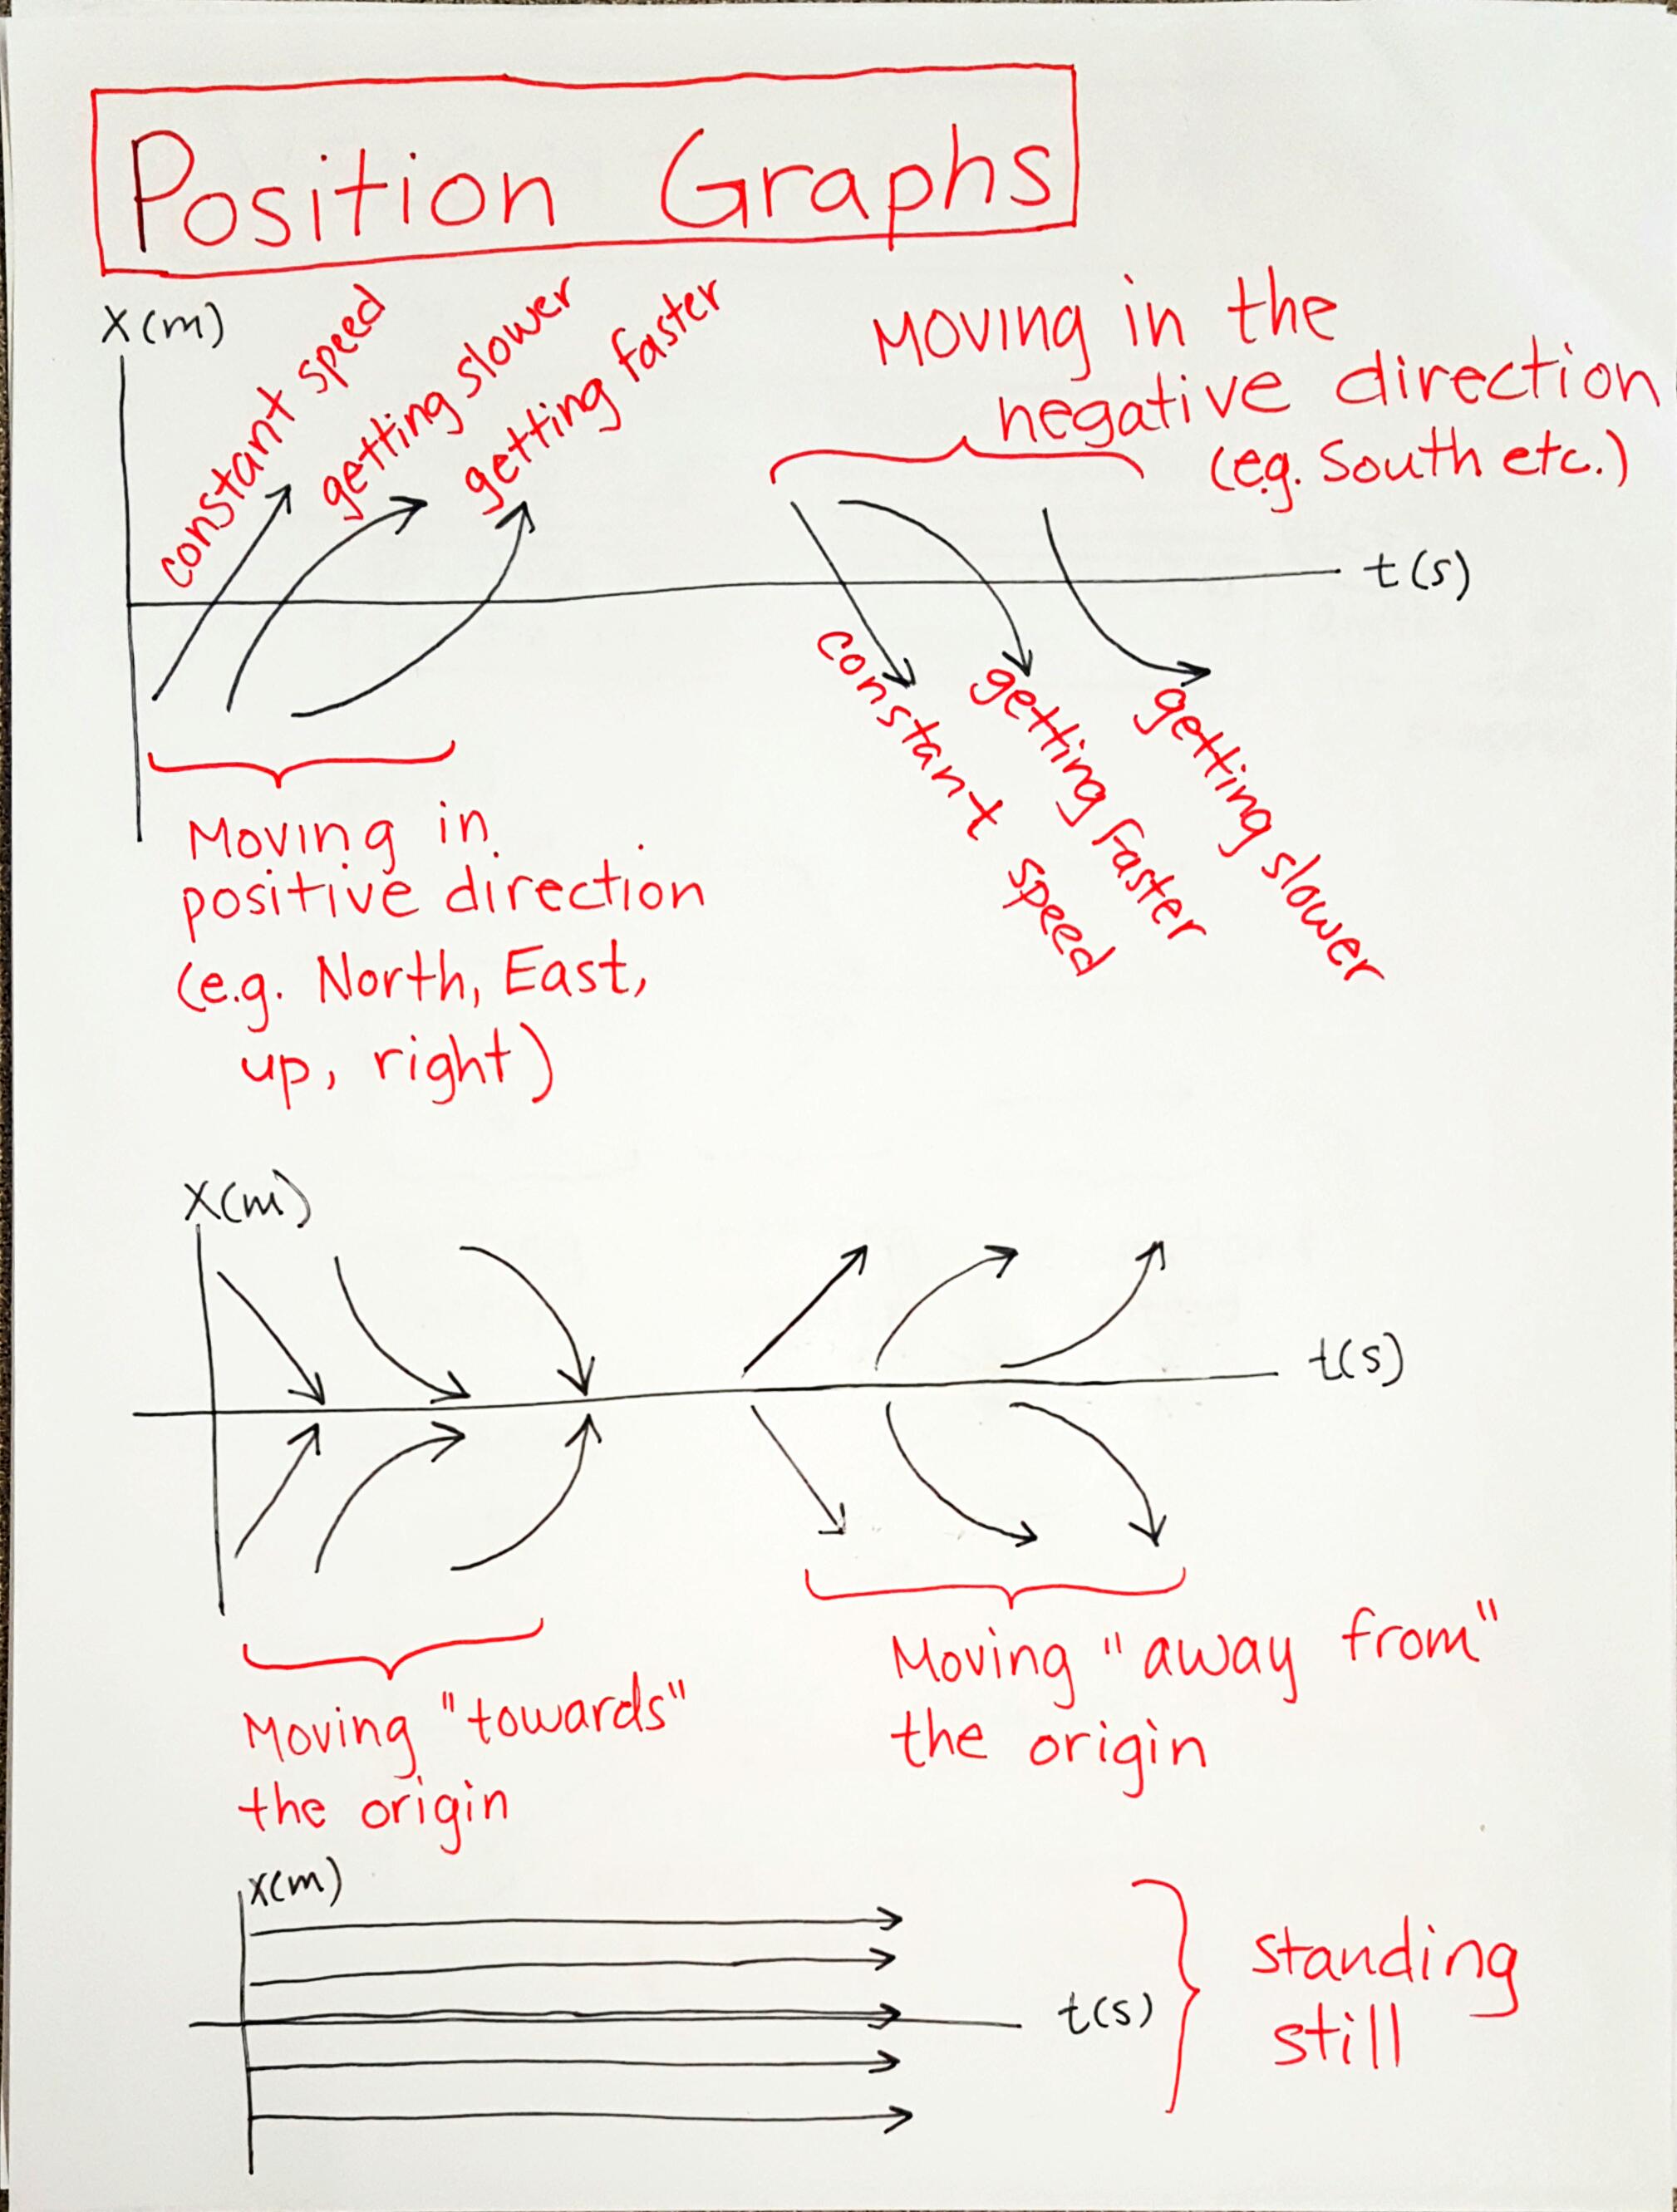 Position Graphs
X(m)
constant speed
getting slower
getting faster
Moving in the
negative direction
(e.g. South etc.)
t(s)
constant speed
getting faster
getting slower
Moving in
positive direction
(e.g. North, East,
up, right)
X(m)
t(s)
Moving "towards"
the origin
Moving "away from"
the origin
X(m)
t(s)
standing
still